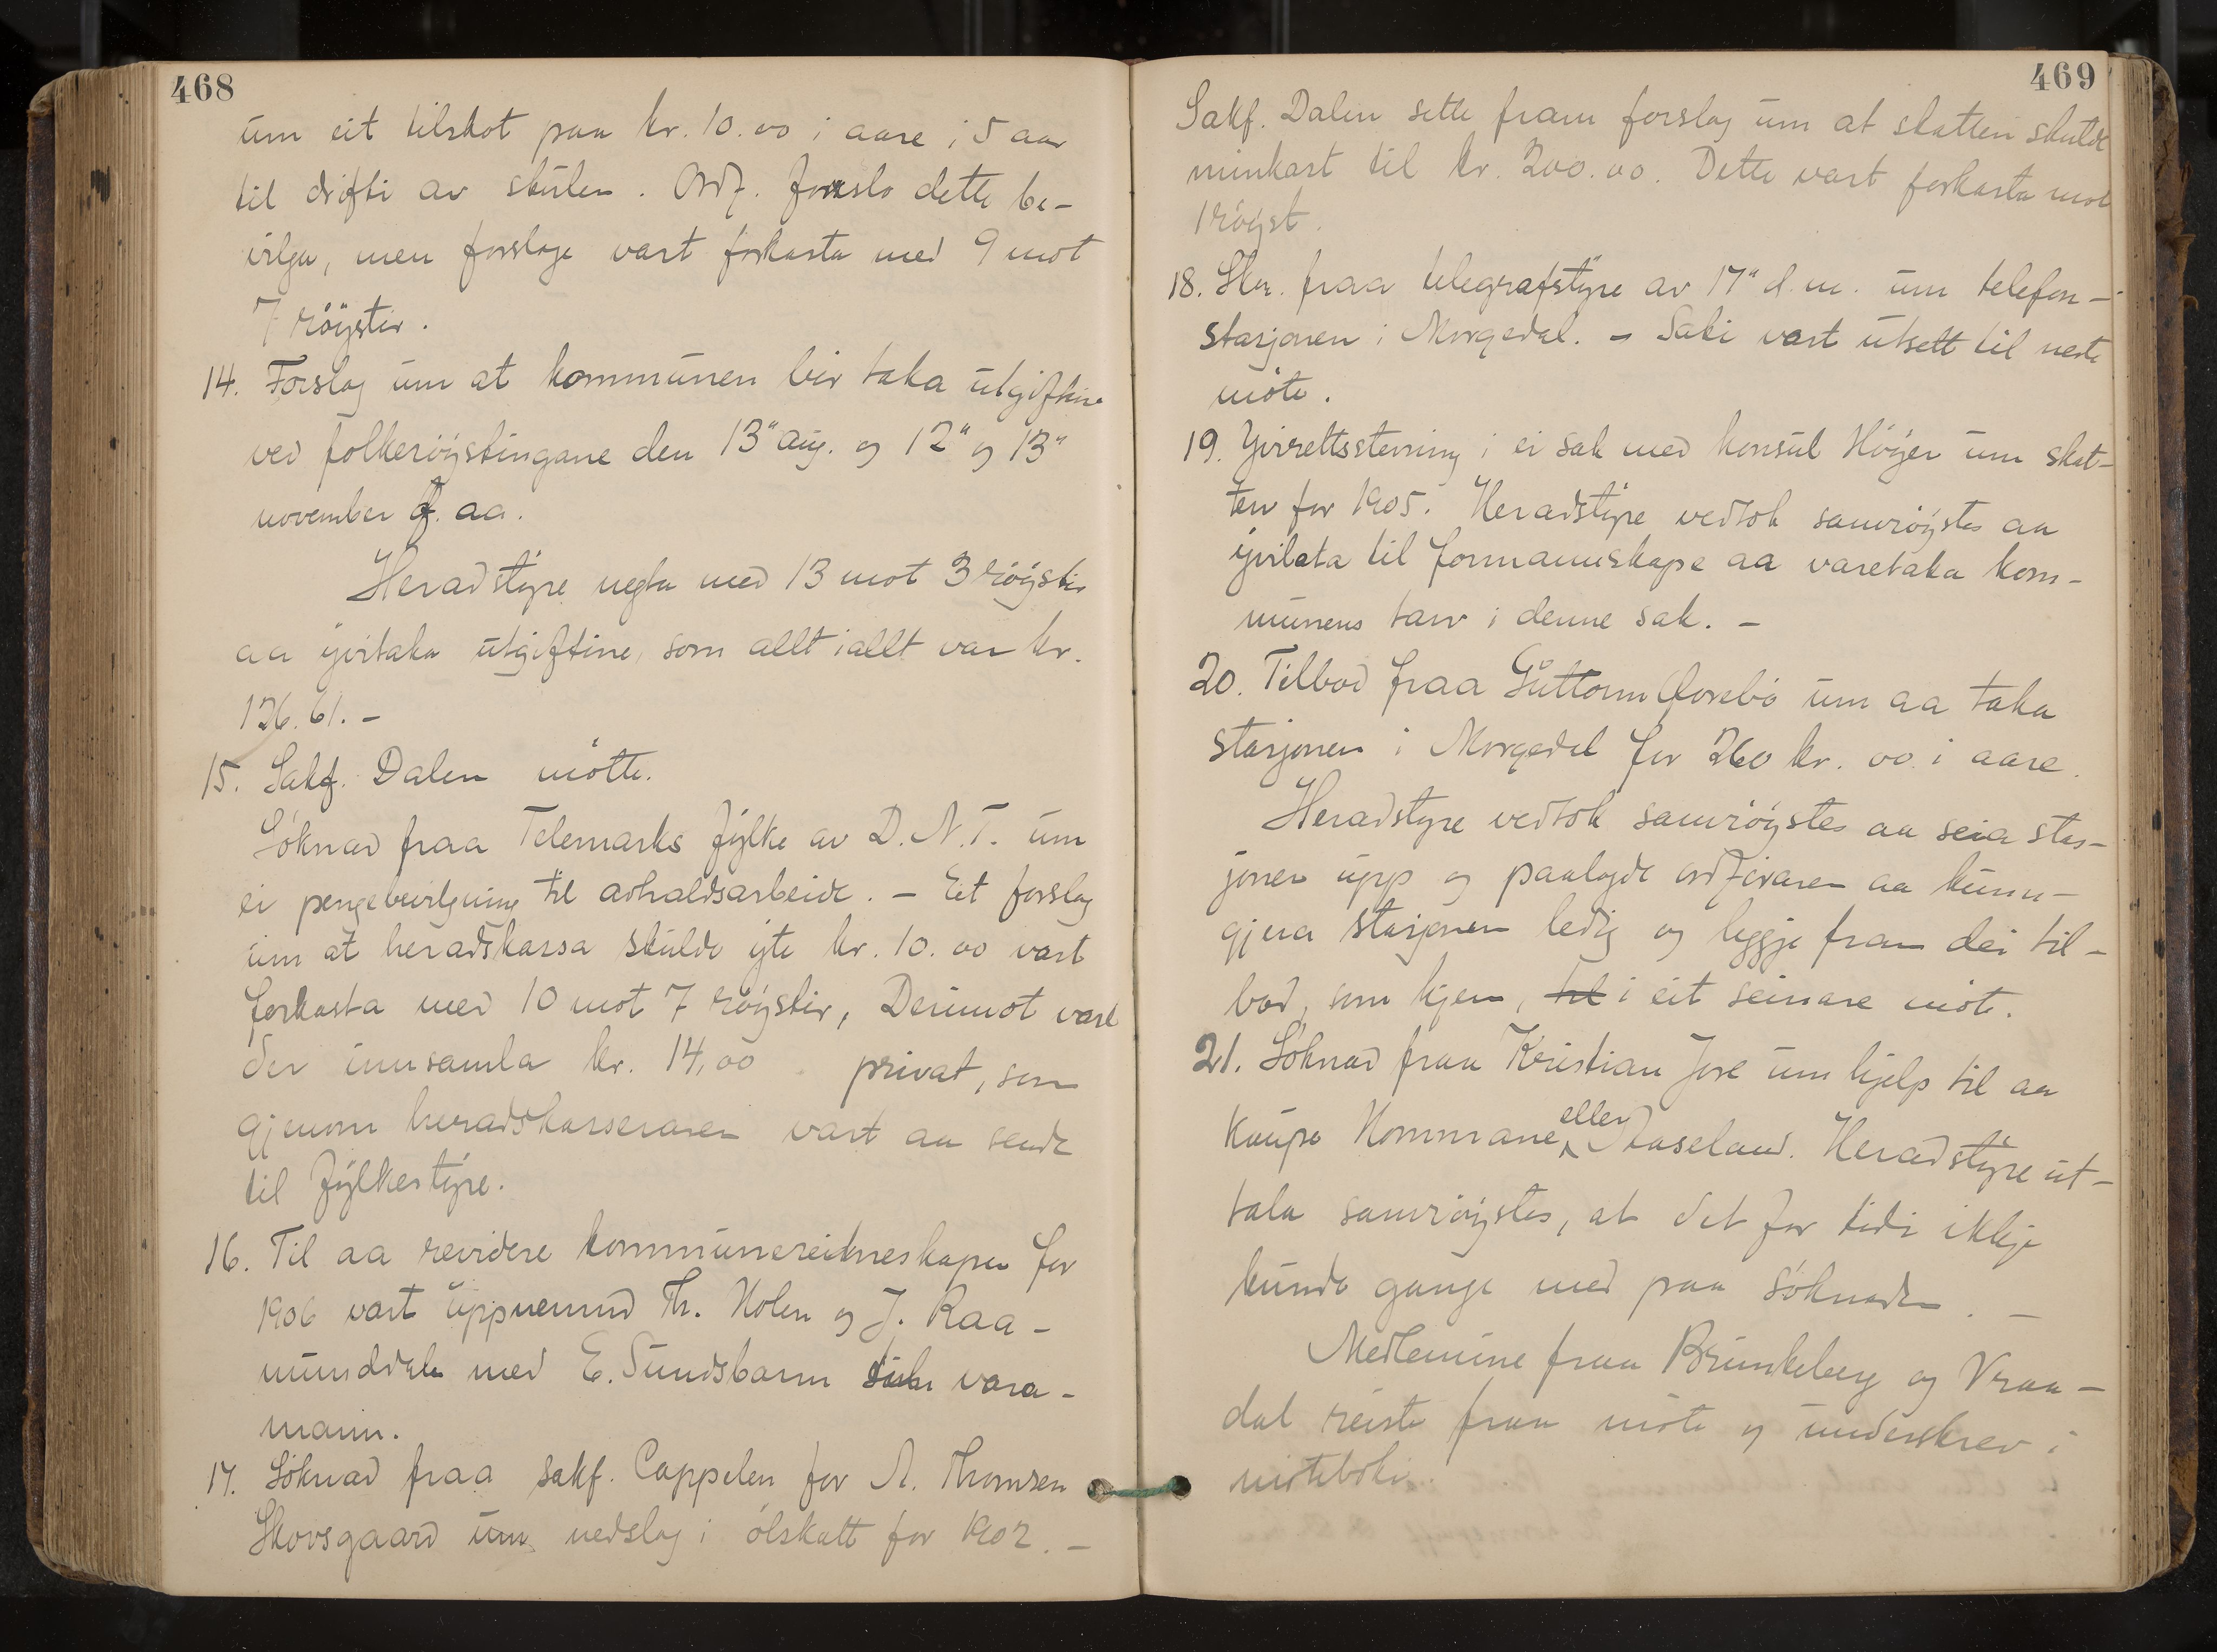 468
um eit tilskot paa kr. 10.00 i aare i 5 aar
til drifti av skulen. Ordf. foreslo dette be-
vilga, men forslage vart forkasta med 9 mot
7 röyster.
14. Forslag um at kommunen bör taka utgiftine
ved folkeröystingane den 13" aug. og 12" og 13"
november f. aa.
Heradstyre negta med 13 mot 3 röyster
aa yvitaka utgiftine, som allt i allt var kr.
126.61. -
15. Sakf. Dalen mötte.
Söknad fraa Telemarks fylke av D. N. T. um
ei pengebevilgning til avhaldsarbeide. - Eit forslag
um at heradskassa skulde yte kr. 10.00 vart
forkasta med 10 mot 7 röyster, Derimot vart
der innsamla kr. 14,00 privat, som
gjenom heradskasseraren vart aa sende
til fylkestyre.
16. Til aa revidere kommunereikneskapen for
1906 vart uppnemnd Th. Holen og J. Raa-
munddalen med E. Sundsbarm vara-
mann.
17. Söknad fraa sakf. Cappelen for A. Thomsen
Skovsgaard um nedslag i ölskatt for 1902. -
469
Sakf. Dalen sette fram forslag um at skatten skulde
minkast til kr. 200.00. Dette vart forkasta mot
1 röyst.
18. Skr. fraa telegrafstyre av 17" d. m. um telefon-
stasjonen i Morgedal. - Saki vart utsett til neste
möte.
19. Yvirettsstevning i ei sak med konsul Höyer um skat-
ten for 1905. Heradstyre vedtok samröystes aa
yvilata til formannskape aa varetaka kom-
munens tarv i denne sak. -
20. Tilbod fraa Guttorm um aa taka
stasjonen i Morgedal for 260 kr. 00 i aare.
Heradstyre vedtok samröystes aa seia stas-
jonen upp og paalagde ordföraren aa kunn-
gjera stasjonen ledig og leggje fram dei til-
bod, som kjem, til i eit seinare möte.
21. Söknad fraa Kristian Jore um hjelp til aa
kaupe Hommane eller Staseland. Heradstyre ut-
tala samröystes, at det for tidi ikkje
kunde gange med paa söknaden. -
Medlemine fraa Brunkeberg og Vraa-
dal reiste fraa möte og underskrev i
möteboki.